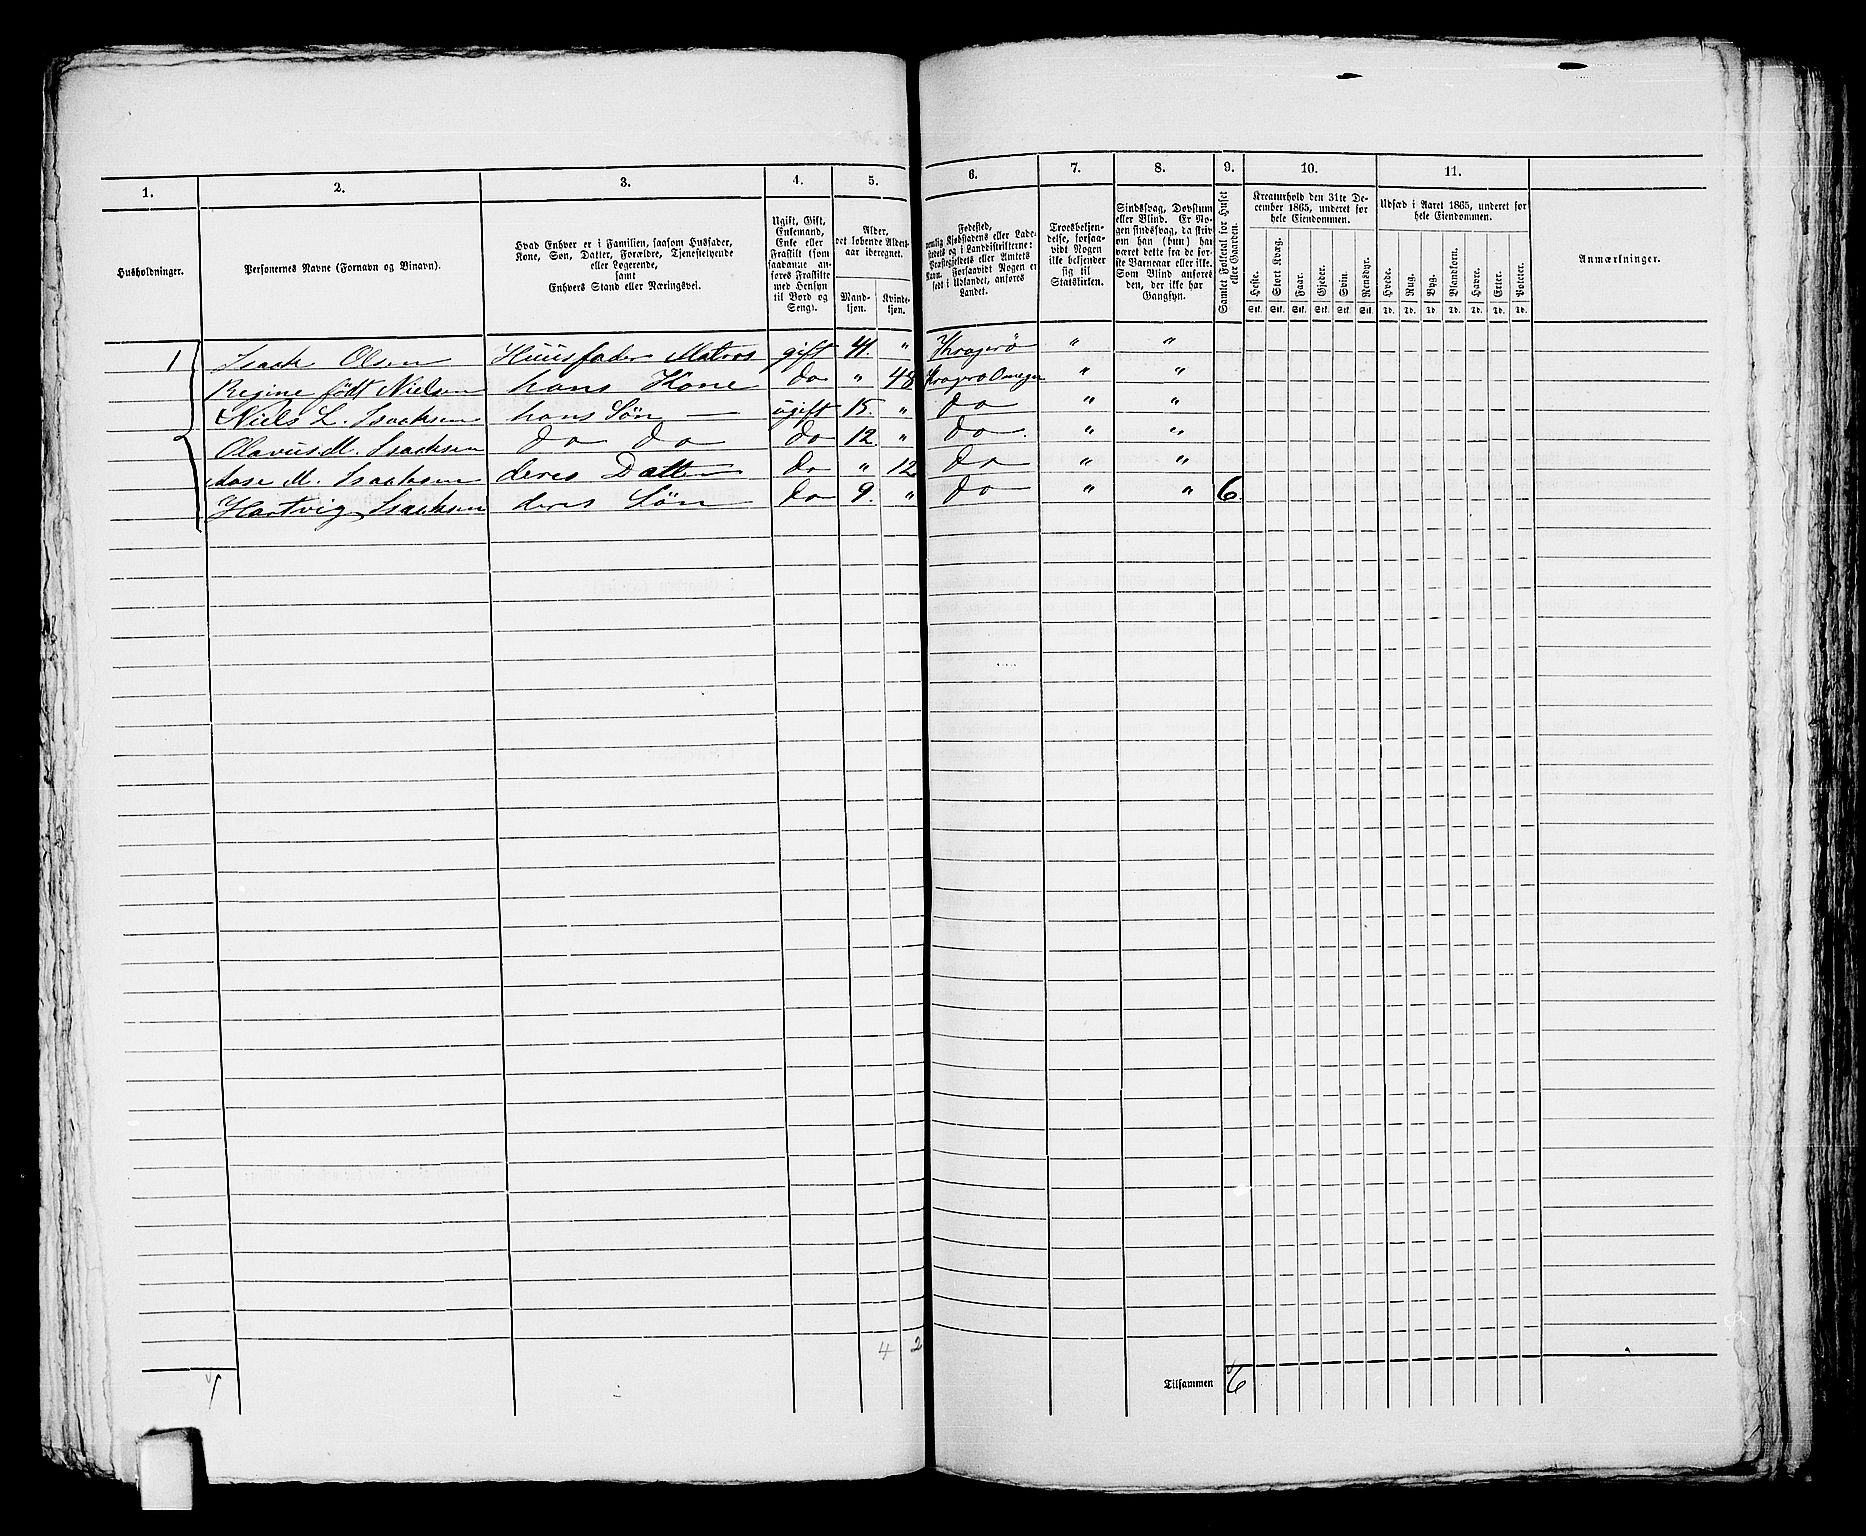 1. 2. 3. 4. 5. 6. 7. 8. 9. 10. 11.
Husholdninger.
Personernes Navne (Fornavn og Binavn).
Hvad Enhver er i Familien, saasom Husfader,
Kone, Søn, Datter, Forældre, Tjenestetyende
eller Logerende,
samt
Enhvers Stand eller Næringsvei.
Ugift, Gift,
Enkemand,
Enke eller
Fraskilt (som
saadanne an-
føres Fraskilte
med Hensyn
til Bord og
Seng).
Alder,
det løbende Alders-
aar iberegnet.
Mand-
kjøn.
Kvinde-
kjøn.
Fødested,
nemlig Kjøbstadens eller Lade-
stedets og i Landdistrikterne:
Præstegjeldets eller Amtets
Navn. Forsaavidt Nogen er
født i Udlandet, anføres
Landet.
Troesbekjen-
delse, forsaa-
vidt Nogen
ikke bekjender
sig til
Statskirken.
Sindssvag, Døvstum
eller Blind. Er No-
gen sindssvag, da skriv
om han (hun) har
været dette fra de før-
ste Barneaar eller ikke.
Som Blind anføres
den, der ikke har
Gangsyn.
Samlet Folketal for Huset
eller Gaarden.
Kreaturhold den 31te De-
cember 1865, underet for
hele Eiendommen.
Heste. Stort Kvæg. Faar. Gjeder. Svin. Rensdyr.
Stk. Stk. Stk. Stk. Stk. Stk.
Udsæd i Aaret 1865, underet for
hele Eiendommen.
Hvede. Rug. Byg. Blandkorn. Havre. Erter. Poteter.
Td. Td. Td. Td. Td. Td. Td.
Anmærkninger.
1 Isach Olsen Huusfader Matros gift 41. " Kragerö " "
Regine født Nielsen hans Kone do " 48 Kragerö Omegn " "
Niels L. Isachsen hans Søn — ugift 15. " do " "
Olavus M. Isachsen do do do 12. " do " "
M. Isachsen deres Datter do " 12 do " "
Hartvig Isachsen deres Søn do 9. " do " " 6
4 2
1 Tilsammen 6